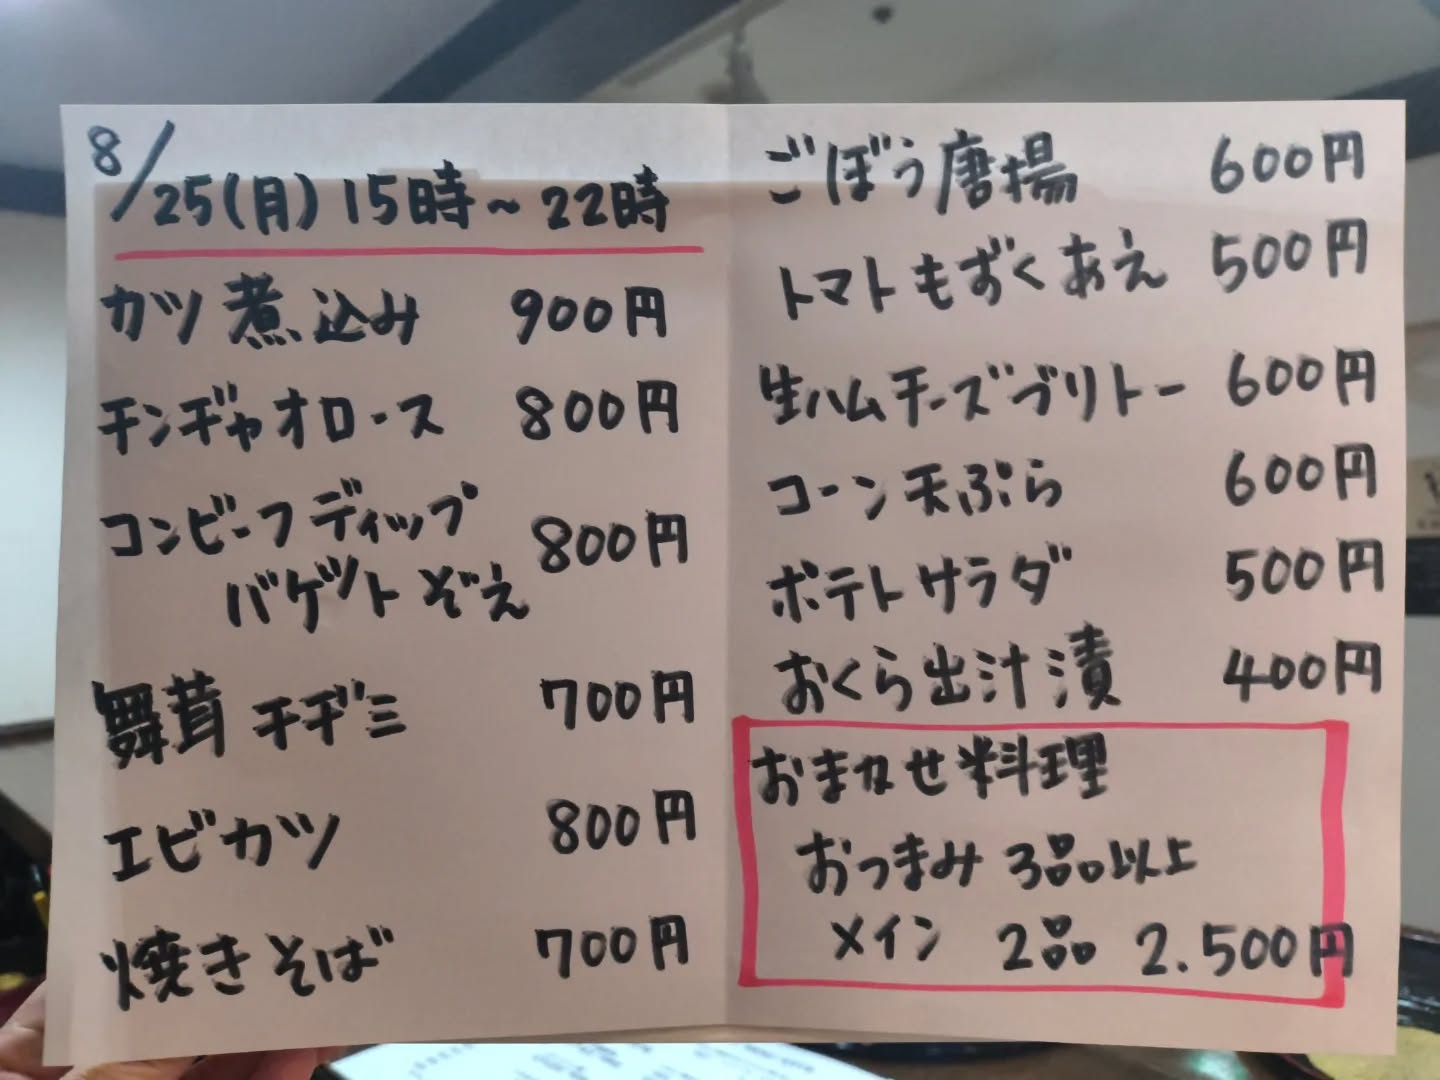 8/25(月)15時~22時
カツ煮込み 900円
チンヂャオロース 800円
コンビーフディップ
バゲットぞえ 800円
舞茸チヂミ 700円
エビカツ 800円
焼きそば 700円
ごぼう唐揚 600円
トマトもずくあえ 500円
生ハムチーズブリトー 600円
コーン天ぷら 600円
ポテトサラダ 500円
おくら出汁漬 400円
おまかせ料理
おつまみ 3品以上
メイン 2品 2.500円